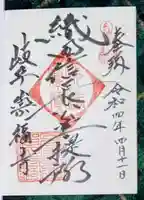 奉拝
令和四年四月十一日
織田信長公菩提所
岐阜 崇福寺